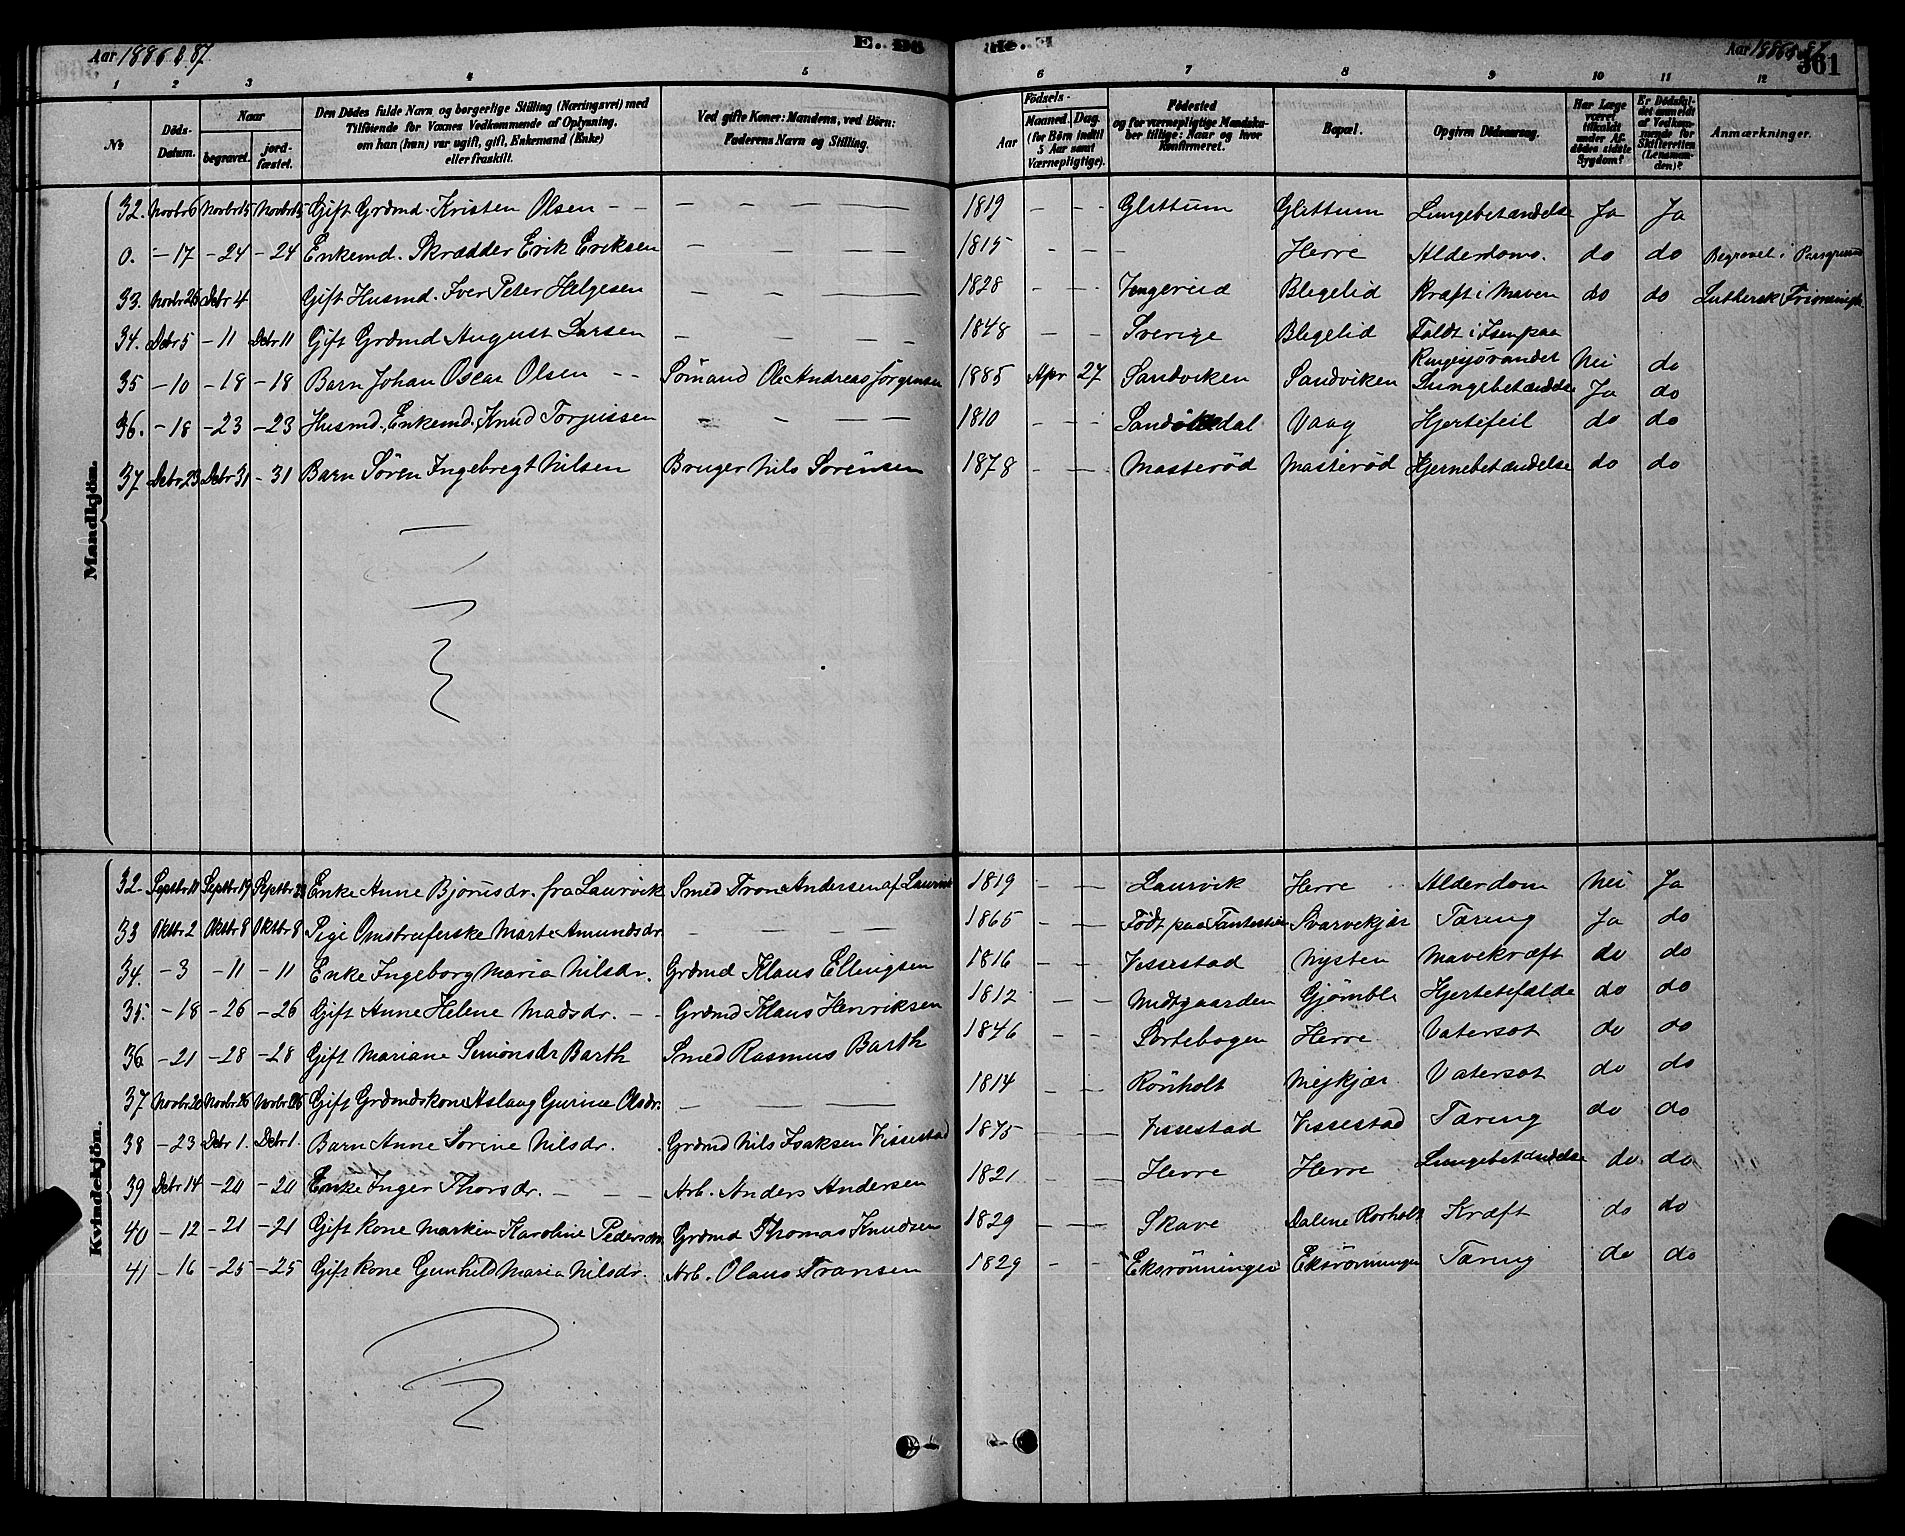 Aar 1886 & 87.
E. Dö
de. E
Aar 1886 & 87
361
1 2 3 4 5 6 7 8 9 10 11 12
No
Döds-Datum.
Naar
begravet.
jord-fæstet.
Den Dödes fulde Navn og borgerlige Stilling (Næringsvei) med Tilföiende for Voxnes Vedkommende af Oplysning, om han (hun) var ugift, gift, Enkemand (Enke) eller fraskilt.
Ved gifte Koner: Mandens, ved Börn: Faderens Navn og Stilling.
Födsels-
Aar
Maaned. Dag.
(for Börn indtil 5 Aar samt Værnepligtige).
Födested
og for værnepligtige Mandskaber tillige: Naar og hvor Konfirmeret.
Bopæl.
Opgiven Dödsaarsag.
Har Læge været tilkaldt under Afdödes sidste Sygdom?
Er Dödsfaldet anmeldt af Vedkommende for Skifteretten (Lensmanden)?
Anmærkninger.
Mandkjön.
32. Novbr 6 Novbr 15 Novbr 15 Gift Grdmd. Kristen Olsen - - — — — 1819 - - - Glittum Glittum Lungebetændelse Ja Ja
0. - 17 - 24 - 24 Enkemd. Skrædder Erik Eriksen — — — 1815 - - - Herre Alderdoms. do do Begravet i Porsgrund
33. Novbr 26 Debr 4 Gift Husmd. Iver Peter Helgesen — — — 1828 - - - Blegelid Kræft i Maven do do Luthersk Frimenigh.
34. Debr 5 - 11 Debr 11 Gift Grdmd August Larsen - - - 1848 - - Sverige Blegelid Faldt i Isen paa
35 - 10 - 18 - 18 Barn Johan Oscar Olsen - - Sömand Ole Andreas Jörgensen 1885 Apr 27 Sandviken Sandviken Lungebetændelse Nei do
Ja do
36. - 18 - 23 - 23 Husmd. Enkemd. Knud Torjussen - - — 1810 - - - Vaag Hjertefeil do do
37 Debr 23 Debr 31 - 31 Barn Sören Ingebregt Nilsen Bruger Nils Sörensen 1878 - — Masteröd Masteröd Hjernebetændelse do do
Kvindekjön.
32. Septbr 11 Septbr 19 Septbr Enke Anne Bjönsdr. fra Laurvik Smed Tron Andersen af Laurvik 1819 - - Laurvik Herre Alderdom Nei Ja
33 Oktbr 2 Oktbr 8 Oktbr 8 Pige Omstreiferske Marte Amundsdr. - — - — 1865 - - Födt paa Svarvekjær Tæring Ja do
34. - 3 - 11 - 11 Enke Ingeborg Maria Nilsdr. Grdmd Klaus Ellingsen 1816 - - Vissestad Nysten Mavekræft do do
35. - 18 - 26 - 26 Gift Anne Helene Madsdr. - - Grdmd Klaus Henriksen 1812 — - Midtgaarden Gjömble Hjertetefælde do do
36 - 21 - 28 - 28 Gift Mariane Simonsdr Barth Smed Rasmus Barth 1846 - - Sortebogen Herre Vatersot do do
37 Novbr 20 Novbr 26 Novbr 26 Gift Grdmdskone Aslaug Gurine Olsdr. - — — 1814 - - Rönholt Mejkjær Vatersot do do
38 - 23 Debr 1. Debr 1. Barn Anne Sorine Nilsdr. Grdmd Nils Isaksen Vissestad 1875 - — Vissestad Vissestad Tæring do do
39 Debr 14 - 20 - 20 Enke Inger Thorsdr. - - - Arb. Anders Andersen 1821 - — Herre Herre Lungebetændelse do do
40 - 12 - 21 - 21 Gift kone Marken Karoline Pedersdr. Grdmd Thomas Knudsen 1829 - — Skave Dalene Rorholt Kræft do do
41 - 16 - 25 - 25 Gift kone Gunhild Maria Nilsdr. Arb. Olaus Fransen 1829 - - Eksrönningen Eksrönningen Tæring do do